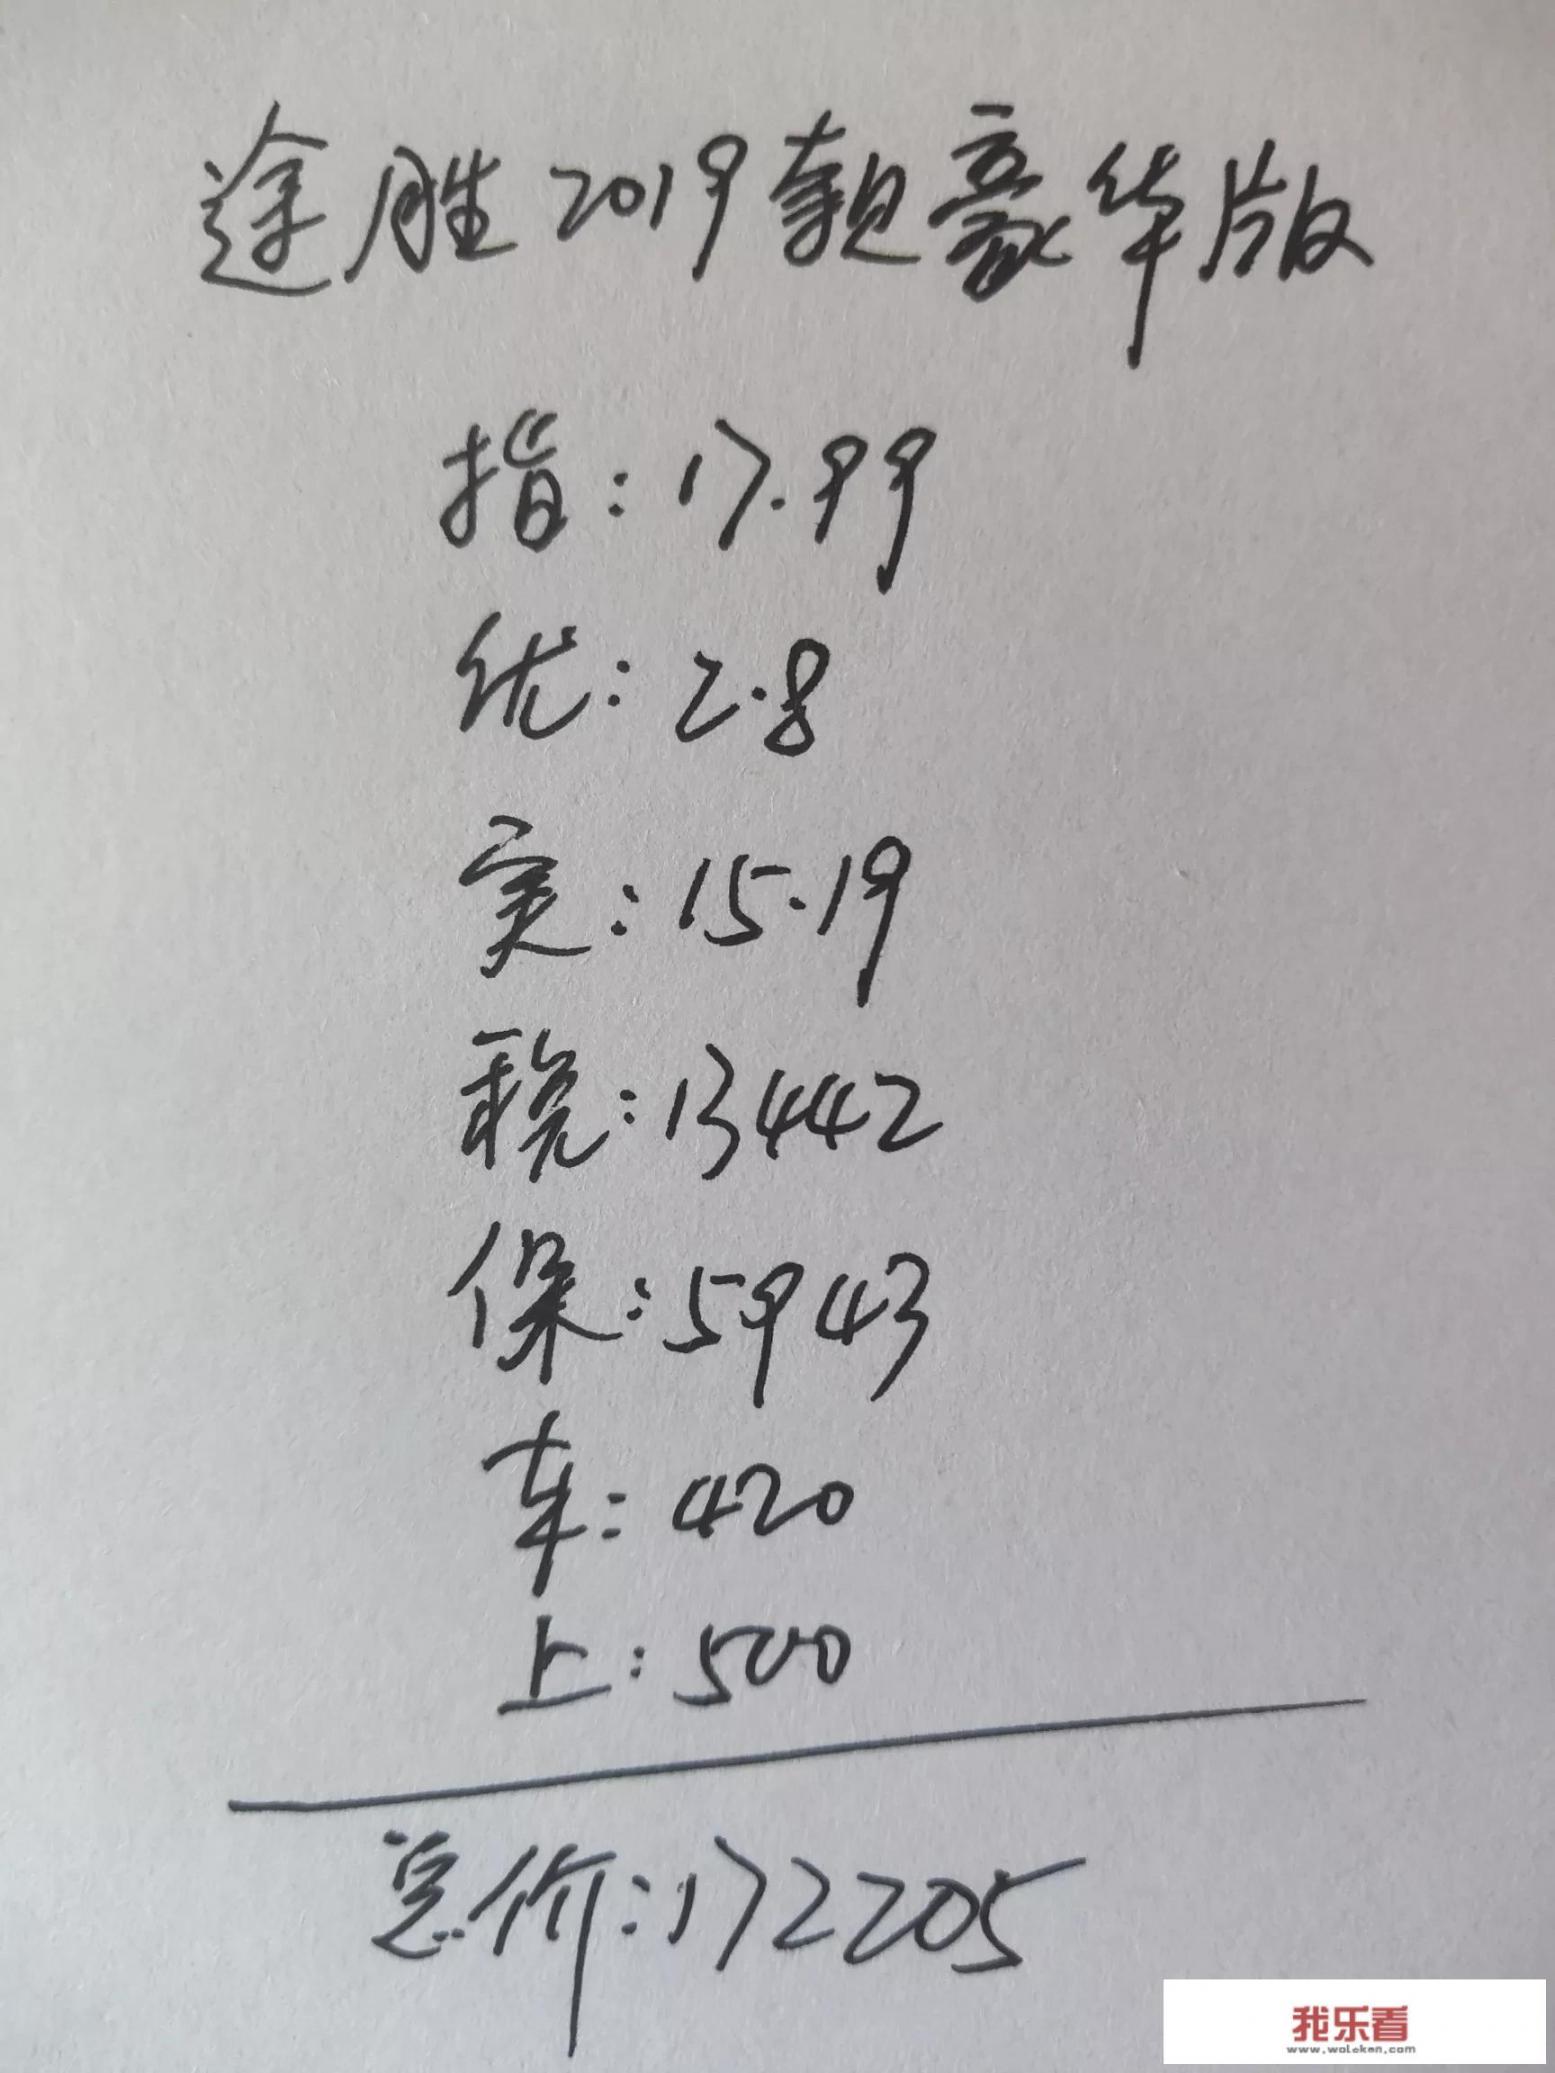 途胜2019款豪华版
指:17.99
优:2.8
实:15.19
税:13442
保:5943
车:420
上:500
总价:172205
我乐看
www.woleken.com